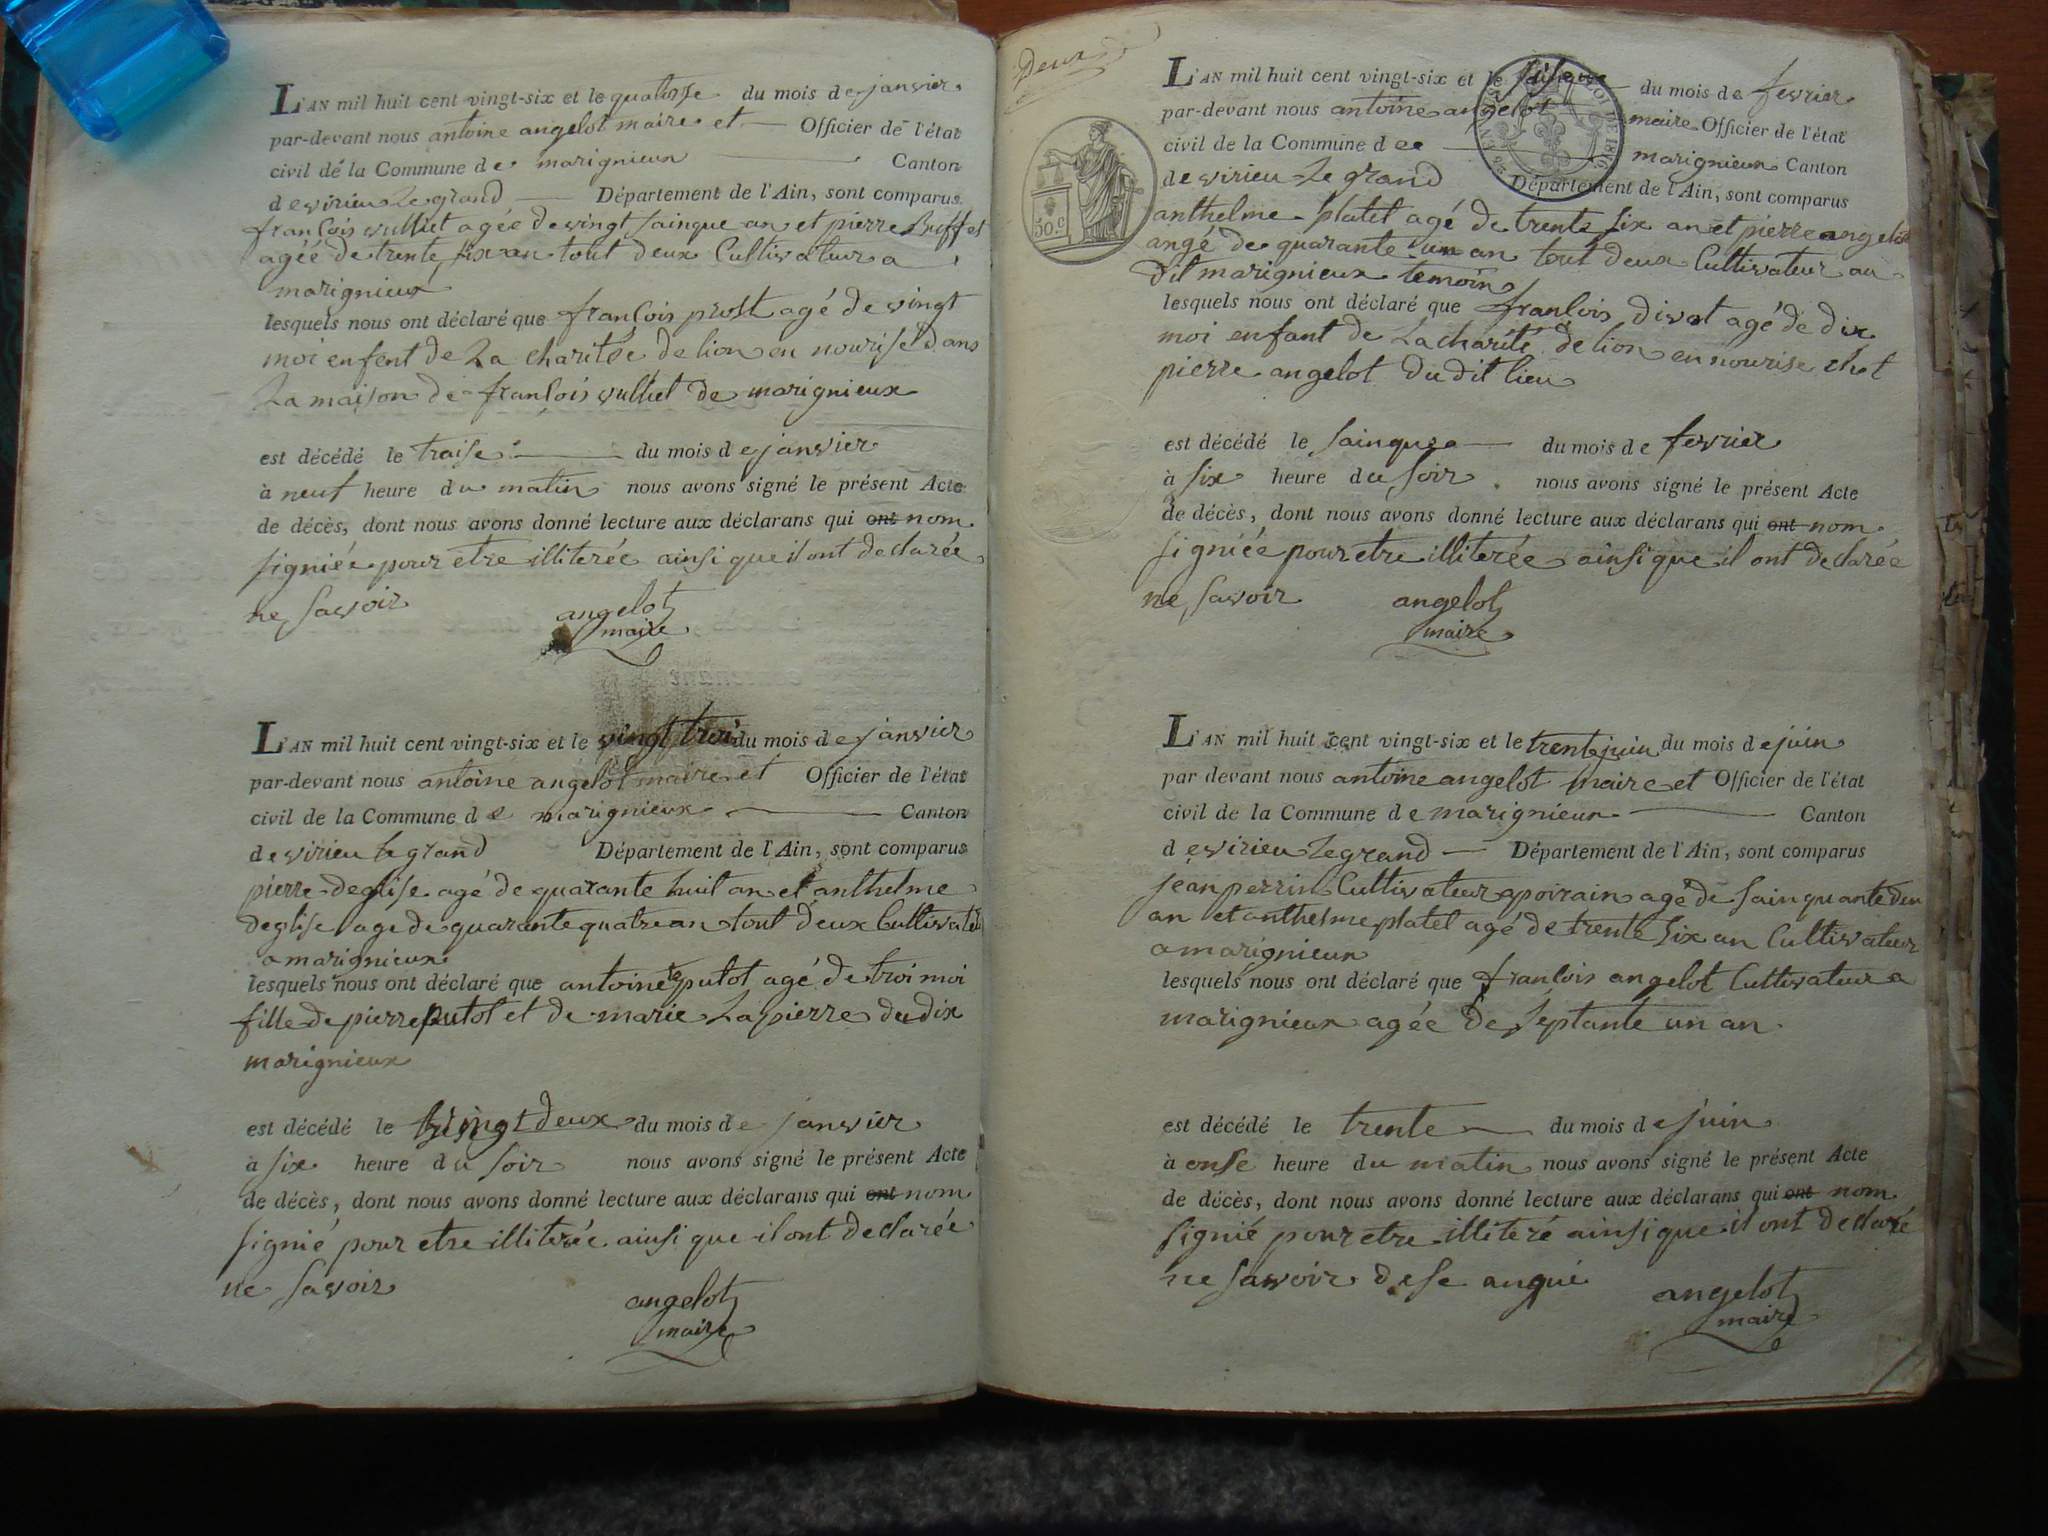 L'AN mil huit cent vingt-six et le quatorse du mois de janvier
par-devant nous antoine angelot maire et Officier de l'état
civil de la Commune de marignieux Canton
de virieu Le grand Département de l'Ain, sont comparus
françois vulliet agée de vingt sainque an et pierre Buffet
agéé de trente six an tout deux Cultivateur a
marignieux
lesquels nous ont déclaré que françois prost agé de vingt
moi enfent de La charitée de lion en nourise dans
La maison de françois vulliet de marignieux
est décédé le traise du mois de janvier
à neuf heure du matin nous avons signé le présent Acte
de décès, dont nous avons donné lecture aux déclarans qui ont nom
signiée pour etre illiterée ainsi que il ont declarée
ne savoir
angelot
maire
L'AN mil huit cent vingt-six et le vingt troi du mois de janvier
par-devant nous antoine angelot maire et Officier de l'état
civil de la Commune de marignieux Canton
de virieu le grand Département de l'Ain, sont comparus
pierre deglise agé de quarante huit an et anthelme
deglise age de quarante quatre an tout deux Cultivateu
a marignieux
lesquels nous ont déclaré que antoine putot agé de troi moi
fille de pierre putot et de marie Lapierre du dix
marignieux
est décédé le vingt deux du mois de janvier
à six heure du soir nous avons signé le présent Acte
de décès, dont nous avons donné lecture aux déclarans qui ont nom
signié pour etre illiterée ainsi que il ont declarée
ne savoir
angelot
maire
Deux
50 c
LOI DE 1816
L'AN mil huit cent vingt-six et le du mois de fevrier
par-devant nous antoine angelot maire Officier de l'état
civil de la Commune de marignieux Canton
de virieu Le grand Département de l'Ain, sont comparus
anthelme platet agé de trente six an et pierre angelot
angé de quarante un an tout deux Cultivateur au
dit marignieux temoin
lesquels nous ont déclaré que françois divat agé de dix
moi enfant de La charité de lion en nourise chet
pierre angelot du dit lieu
est décédé le sainque du mois de fevrier
à six heure du soir nous avons signé le présent Acte
de décès, dont nous avons donné lecture aux déclarans qui ont nom
signiéé pour etre illiterée ainsi que il ont declarée
ne savoir
angelot
maire
L'AN mil huit cent vingt-six et le trente juin du mois de juin
par devant nous antoine angelot maire et Officier de l'état
civil de la Commune de marignieux Canton
de virieu Le grand Département de l'Ain, sont comparus
jean perrin Cultivateur a poirain agé de sainquante deu
an et anthelme platet agé de trente six an Cultivateur
a marignieux
lesquels nous ont déclaré que françois angelot Cultivateur a
marignieux agée de septante un an
est décédé le trente du mois de juin
à onse heure du matin nous avons signé le présent Acte
de décès, dont nous avons donné lecture aux déclarans qui ont nom
signié pour etre illiteré ainsi que il ont declaré
ne savoir de se anqui
angelot
maire